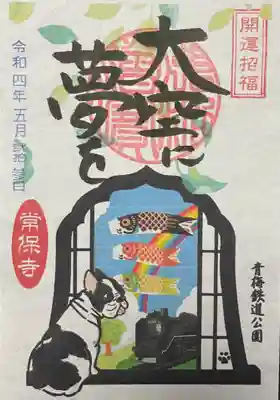 開運招福
大空に
夢を
令和四年五月
常保寺
青梅鉄道公園